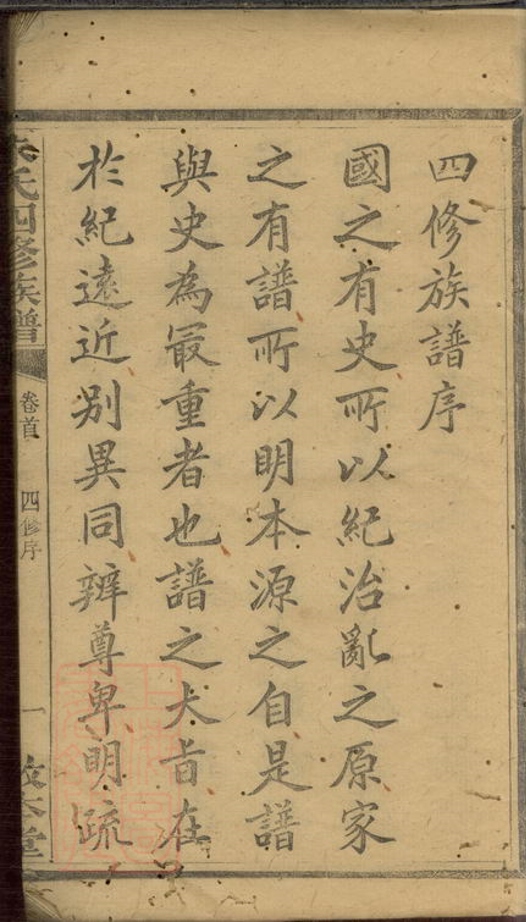 四修族譜序
國之有史所以紀治亂之原家
之有譜所以明本源之自是譜
與史為最重者也譜之大旨在
於紀遠近別異同辨尊卑明疏
氏四修族譜
卷首
四修序
一